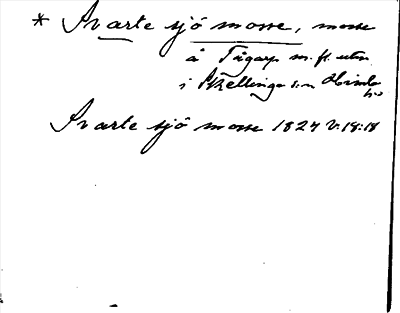 * Svarte sjö mosse, mosse
å Tågarp m. fl. utm.
i Skellinge s:n Himle
hd
Svarte sjö mosse 1827 V:18:18